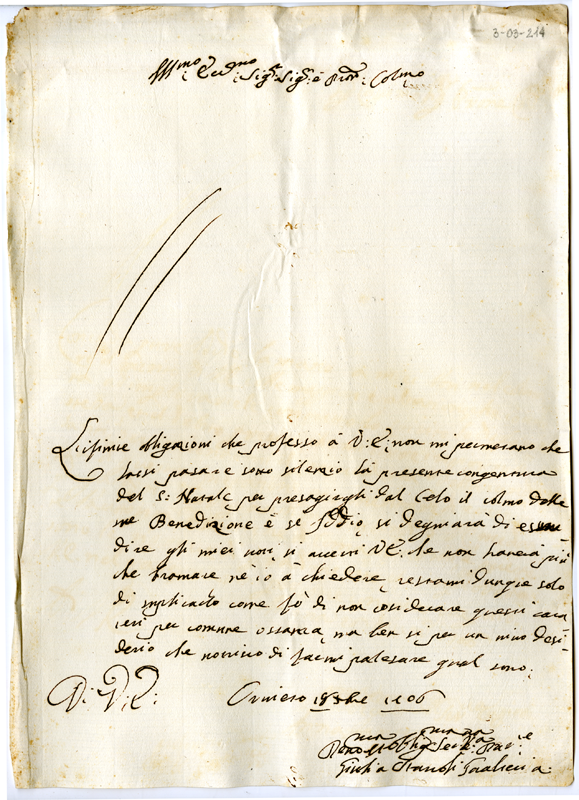 3-03-214
Ill:mo Ecc:mo Sig:r Sig:r e Pron: Colmo
L'infinite obligazioni che professo à V: E: non mi permetano che
lassi pasare sotto silenzio la presente congentura
del S: Natale per presagirgli dal Celo il colmo delle
me Benedizione è se Iddio si degniarà di esau
dire gli miei voti si accerti VE: che non haverà più
che bramare nè io à chiedere restami dunque solo
di suplicarlo come fò di non considerare questi cara
teri per comune ossanza, ma ben si per un vivo desi
derio che nutrisco di farmi palesare qual sono:
D: V: E:
Orvieto 1706
Giulia